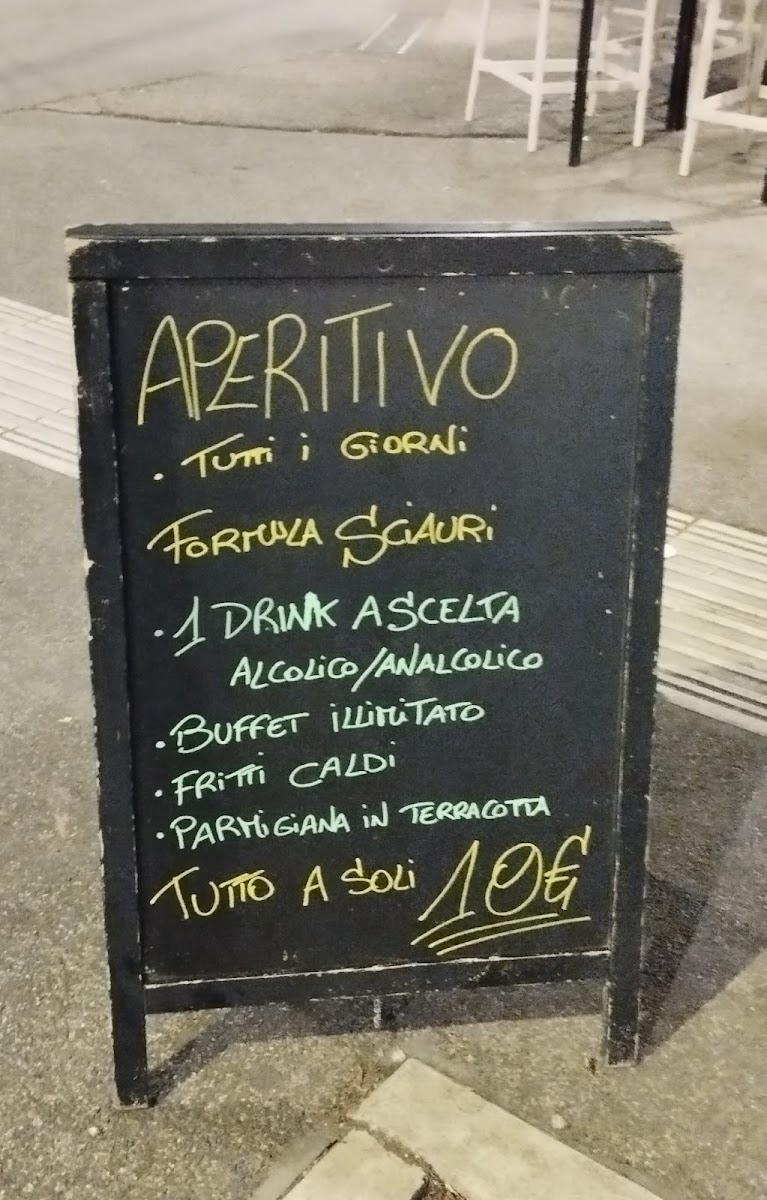 APERITIVO
• TUTTI i GIORNi
FORMULA SCIAURi
• 1 DRINK A SCELTA
ALCOLICO/ANALCOLICO
• BUFFET iLLIMITATO
• FRITTI CALDI
• PARMIGIANA IN TERRACOTTA
TUTTO A SOLI 10€